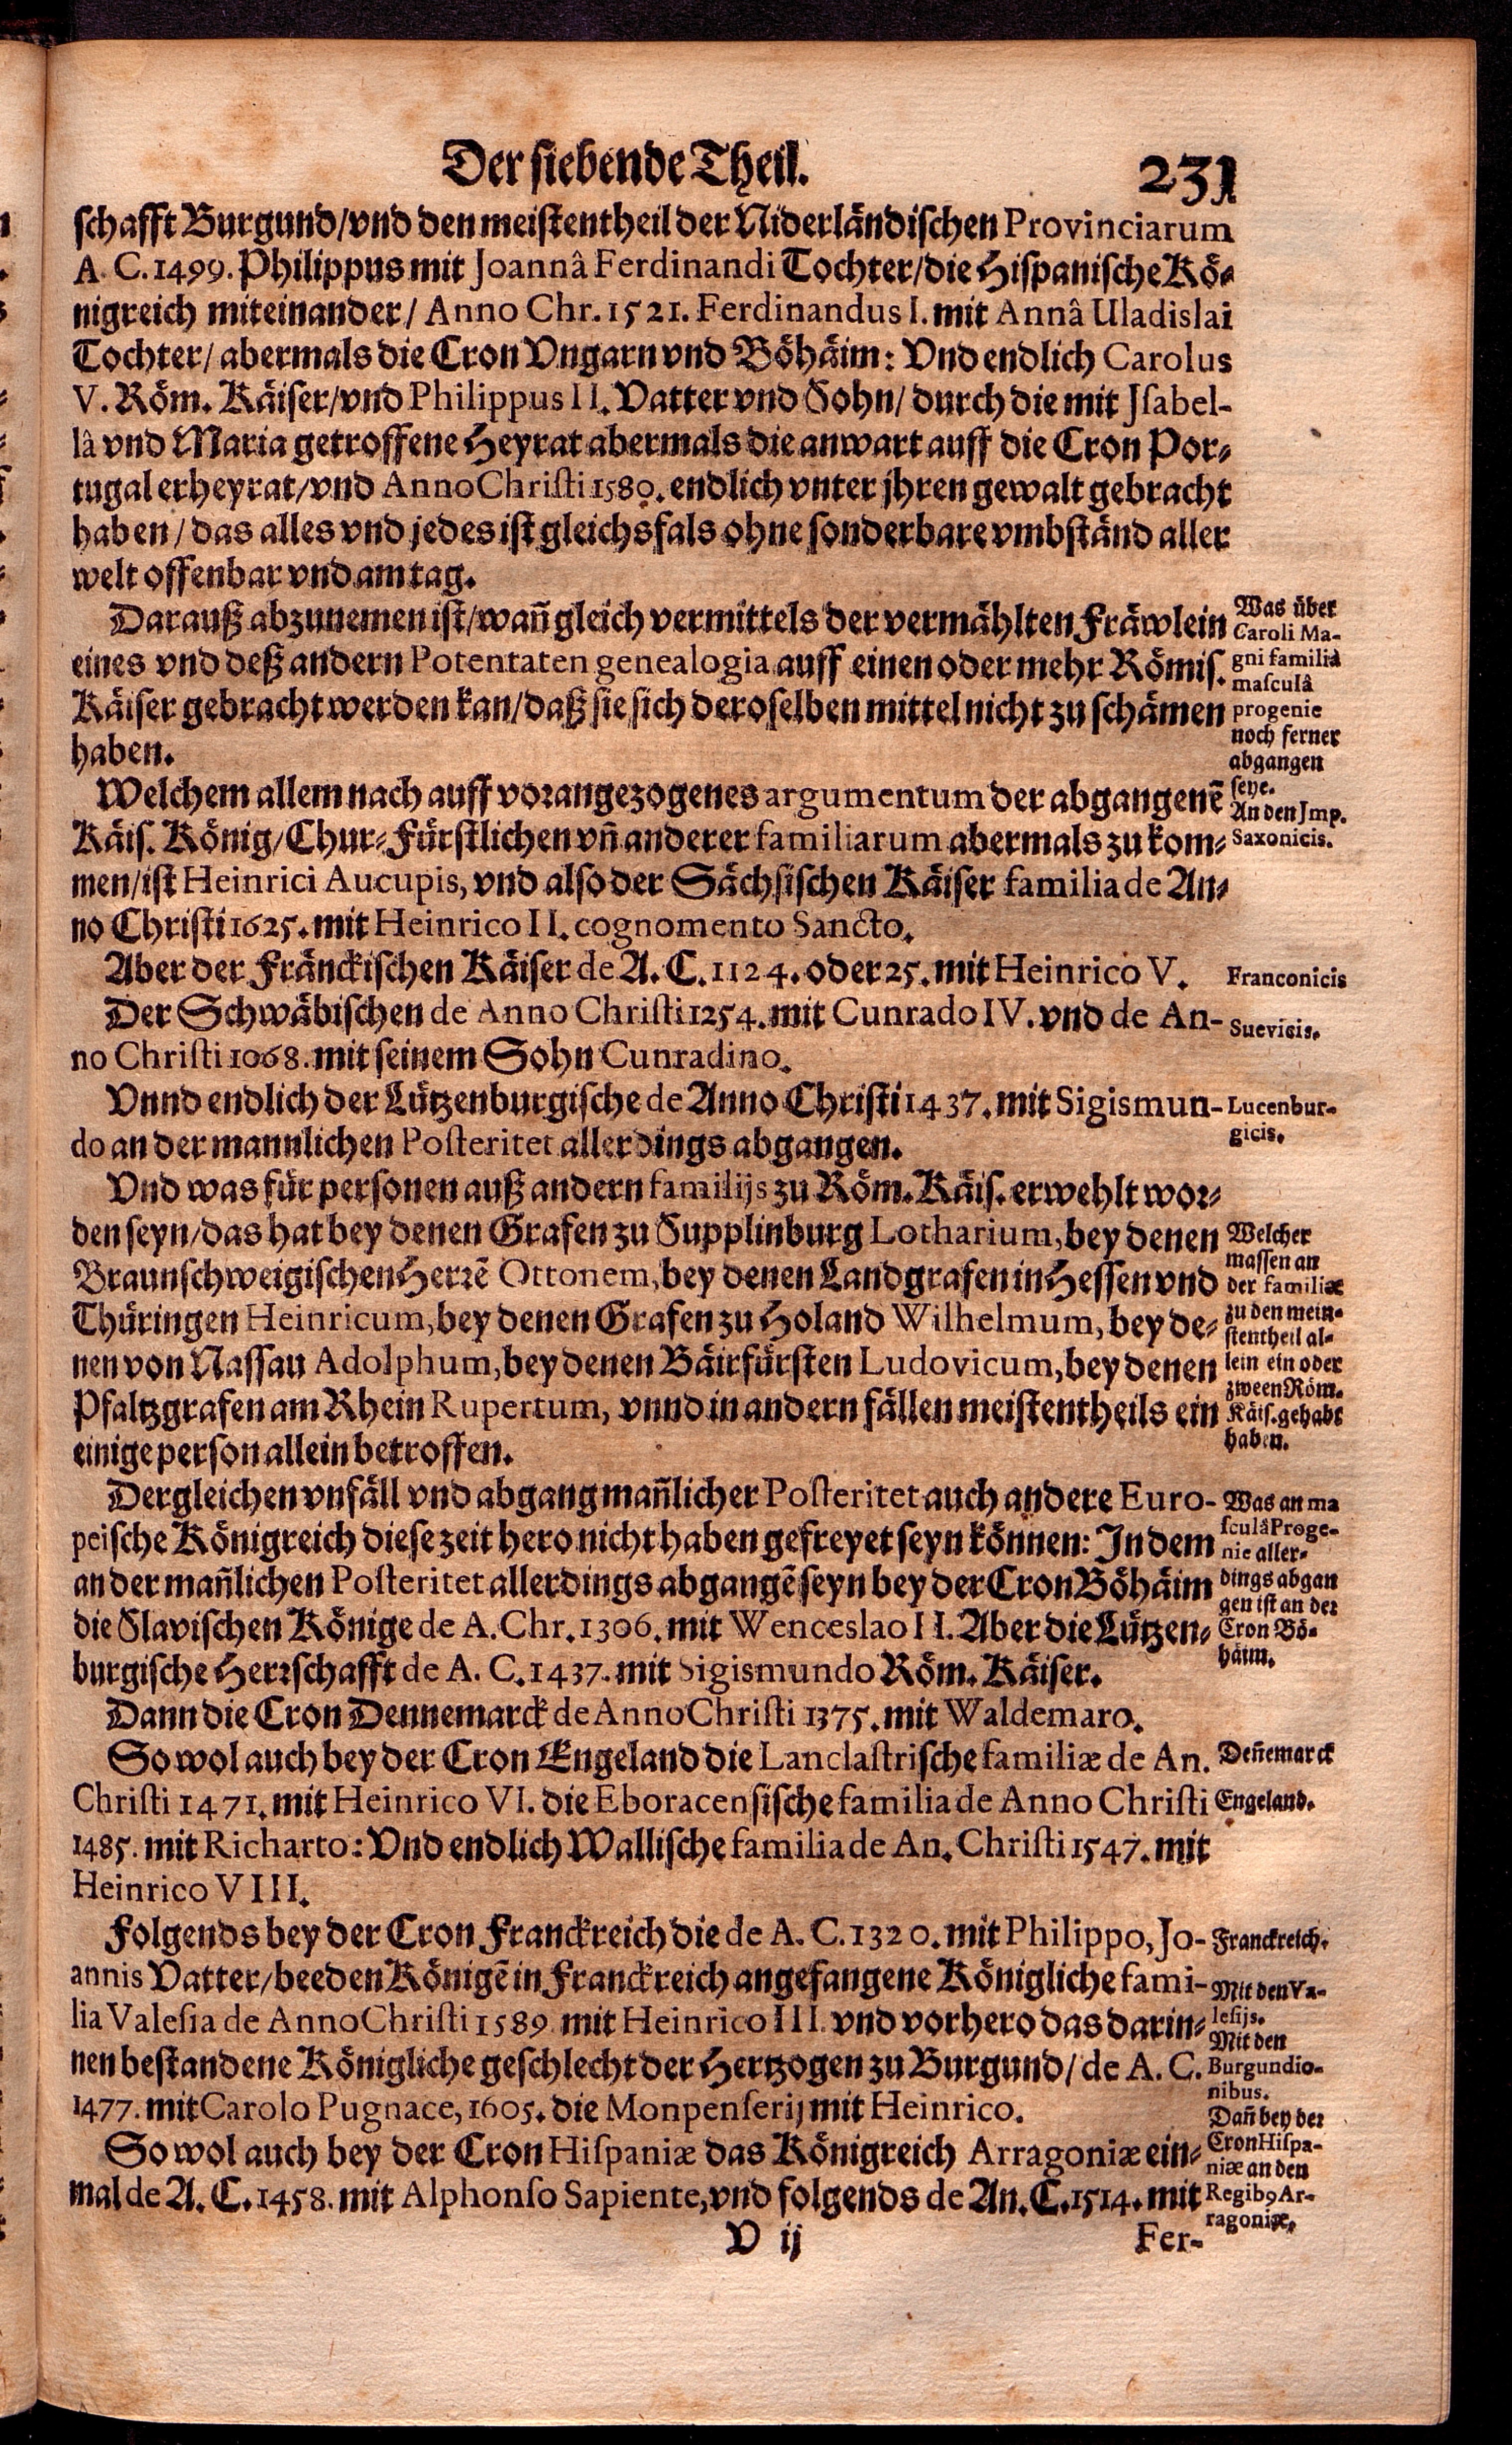 Der siebende Theil. 231
schafft Burgund/vnd den meistentheil der Niderländischen Provinciarum
A. C. 1499. Philippus mit Joannâ Ferdinandi Tochter/die Hispanische Kö-
nigreich miteinander/ Anno Chr. 1521. Ferdinandus I. mit Annâ Uladislai
Tochter/ abermals die Cron Vngarn vnd Böhäim: Vnd endlich Carolus
V. Röm. Käiser/vnd Philippus II. Vatter vnd Sohn/ durch die mit Isabel-
lâ vnd Maria getroffene Heyrat abermals die anwart auff die Cron Por-
tugal erheyrat/vnd Anno Christi 1580. endlich vnter jhren gewalt gebracht
haben/ das alles vnd jedes ist gleichsfals ohne sonderbare vmbständ aller
welt offenbar vnd am tag.
Darauß abzunemen ist/wañ gleich vermittels der vermählten Fräwlein
eines vnd deß andern Potentaten genealogia auff einen oder mehr Römis.
Käiser gebracht werden kan/daß sie sich deroselben mittel nicht zu schämen
haben.
Was über
Caroli Ma-
gni familiâ
masculâ
progenie
noch ferner
abgangen
seye.
Welchem allem nach auff vorangezogenes argumentum der abgangenē
Käis. König/Chur-Fürstlichen vñ anderer familiarum abermals zu kom-
men/ist Heinrici Aucupis, vnd also der Sächsischen Käiser familia de An-
no Christi 1625. mit Heinrico II. cognomento Sancto.
An den Imp.
Saxonicis.
Aber der Fränckischen Käiser de A. C. 1124. oder 25. mit Heinrico V.
Franconicis
Der Schwäbischen de Anno Christi 1254. mit Cunrado IV. vnd de An-
no Christi 1068. mit seinem Sohn Cunradino.
Suevicis.
Vnnd endlich der Lützenburgische de Anno Christi 1437. mit Sigismun-
do an der mannlichen Posteritet allerdings abgangen.
Lucenbur-
gicis.
Vnd was für personen auß andern familijs zu Röm. Käis. erwehlt wor-
den seyn/das hat bey denen Grafen zu Supplinburg Lotharium, bey denen
Braunschweigischen Herrē Ottonem, bey denen Landgrafen in Hessen vnd
Thüringen Heinricum, bey denen Grafen zu Holand Wilhelmum, bey de-
nen von Nassau Adolphum, bey denen Bäirfürsten Ludovicum, bey denen
Pfaltzgrafen am Rhein Rupertum, vnnd in andern fällen meistentheils ein
einige person allein betroffen.
Welcher
massen an
der familiæ
zu den mein-
stentheil al-
lein ein oder
zween Röm.
Käis. gehabt
haben.
Dergleichen vnfäll vnd abgang mañlicher Posteritet auch andere Euro-
peische Königreich diese zeit hero nicht haben gefreyet seyn können: In dem
an der mañlichen Posteritet allerdings abgangē seyn bey der Cron Böhäim
die Slavischen Könige de A. Chr. 1306. mit Wenceslao II. Aber die Lützen-
burgische Herrschafft de A. C. 1437. mit Sigismundo Röm. Käiser.
Was an ma
sculâ Proge-
nie aller-
dings abgan
gen ist an der
Cron Bö-
häim.
Dann die Cron Dennemarck de Anno Christi 1375. mit Waldemaro.
Deñemarck
So wol auch bey der Cron Engeland die Lanclastrische familiæ de An.
Christi 1471. mit Heinrico VI. die Eboracensische familia de Anno Christi
1485. mit Richarto: Vnd endlich Wallische familia de An. Christi 1547. mit
Heinrico VIII.
Engeland.
Folgends bey der Cron Franckreich die de A. C. 1320. mit Philippo, Jo-
annis Vatter/beeden Königē in Franckreich angefangene Königliche fami-
lia Valesia de Anno Christi 1589. mit Heinrico III. vnd vorhero das darin-
nen bestandene Königliche geschlecht der Hertzogen zu Burgund/ de A. C.
1477. mit Carolo Pugnace, 1605. die Monpenserij mit Heinrico.
Franckreich.
Mit den Va-
lesijs.
Mit den
Burgundio-
nibus.
So wol auch bey der Cron Hispaniæ das Königreich Arragoniæ ein-
mal de A. C. 1458. mit Alphonso Sapiente, vnd folgends de An. C. 1514. mit
Dañ bey der
Cron Hispa-
niæ an den
Regib9 Ar-
ragoniæ.
V ij Fer-